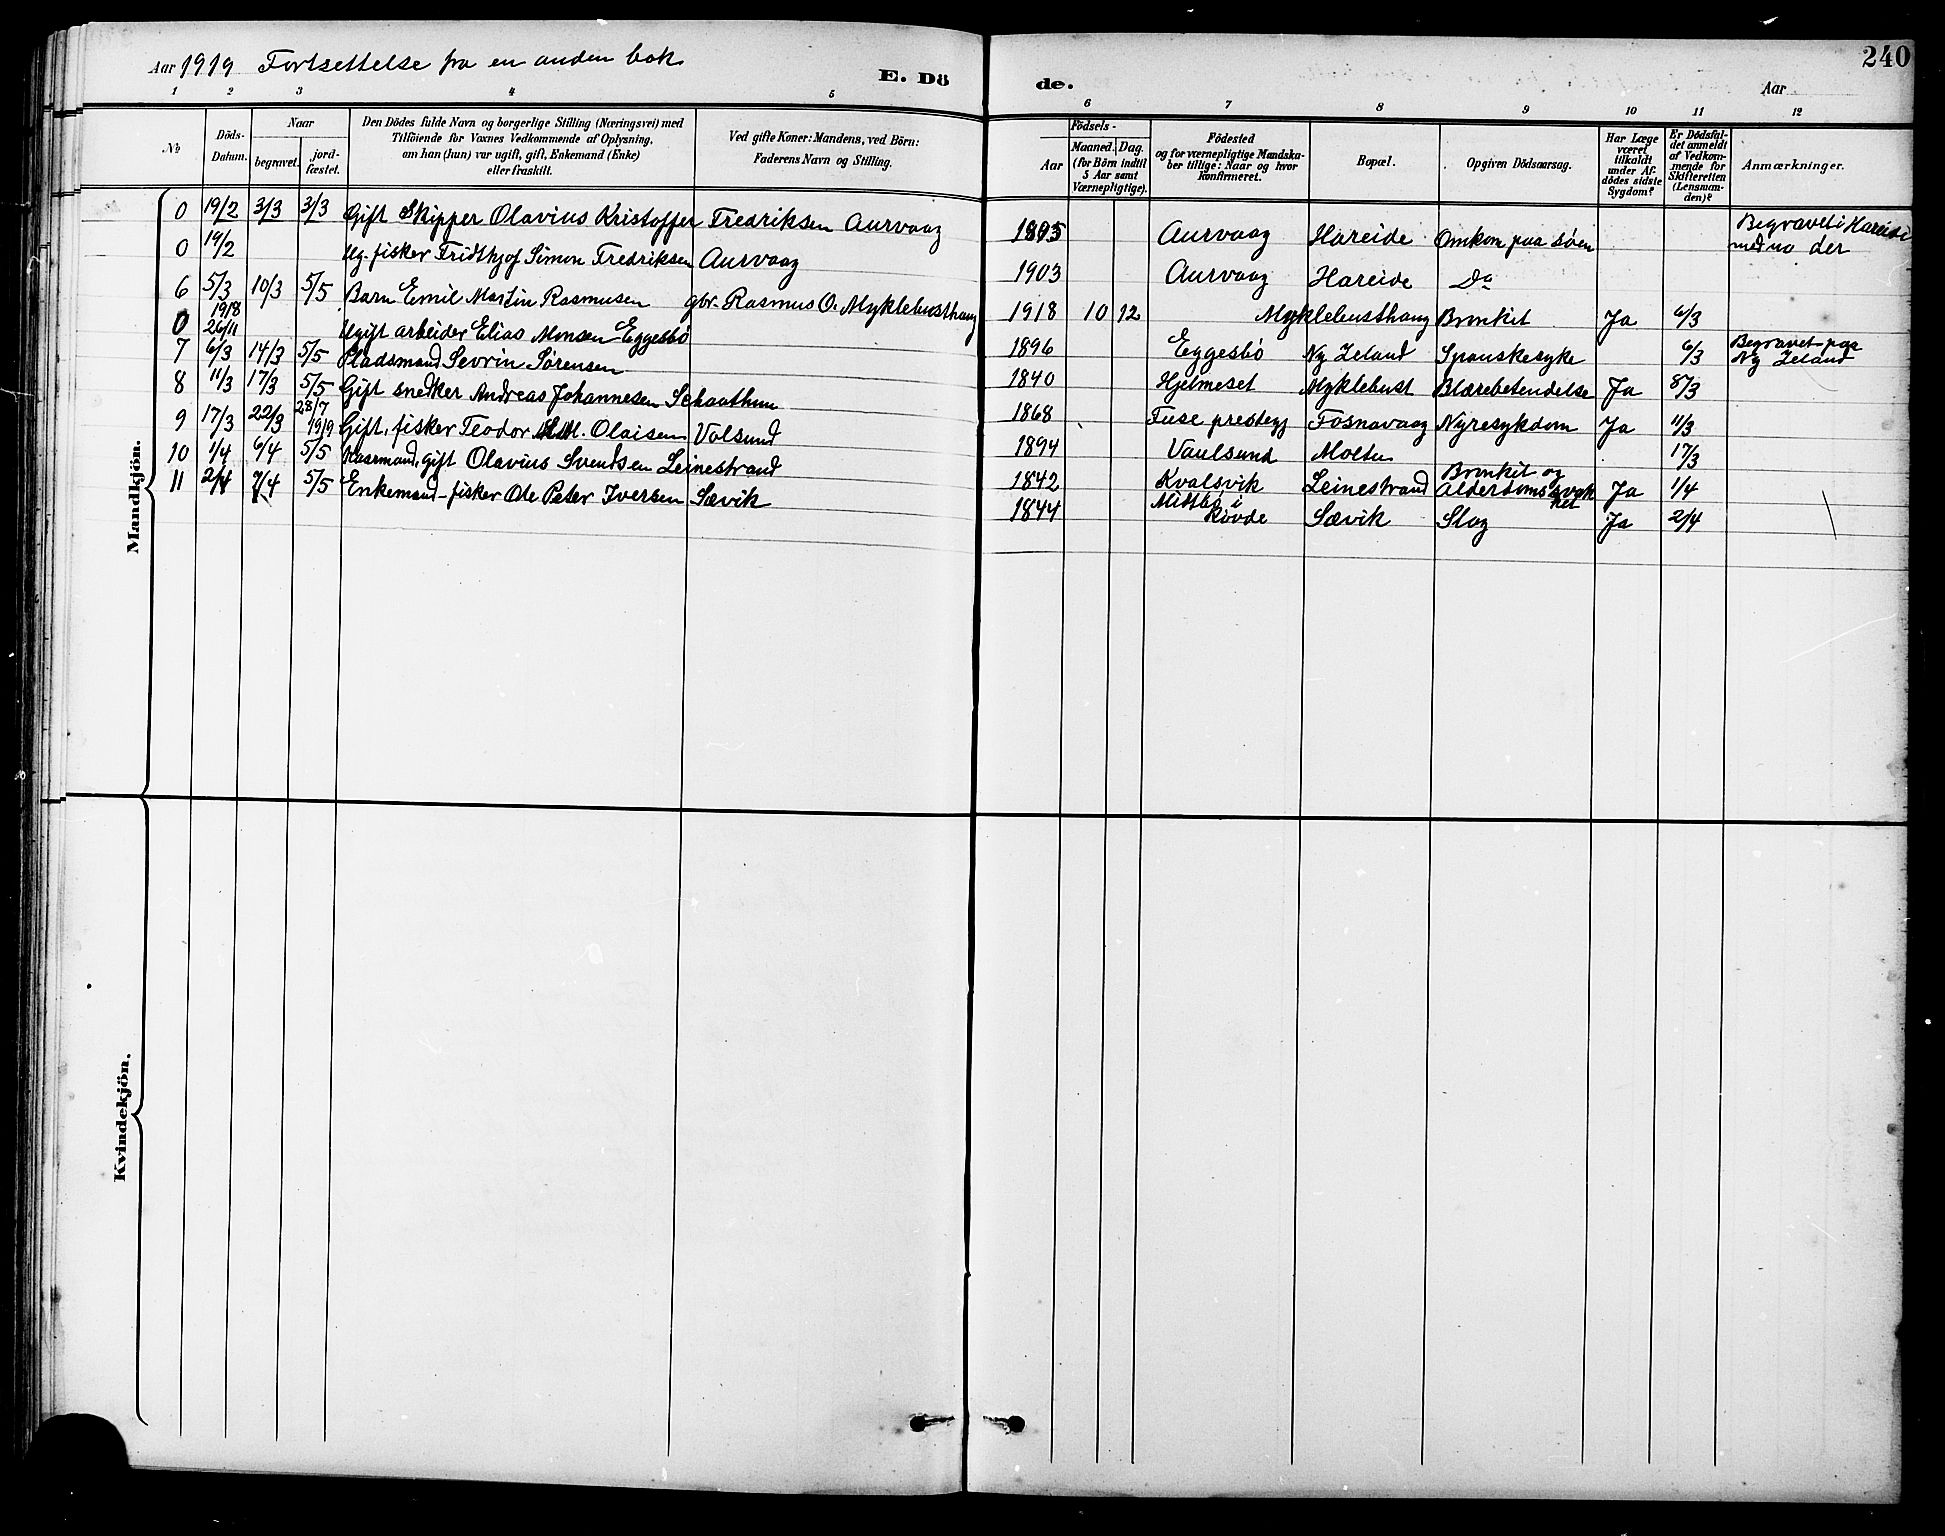 Aar 1919 Fortsettelse fra en anden bok
E. Döde.
Aar
240
1 2 3 4 5 6 7 8 9 10 11 12
No
Döds-Datum.
Naar
begravet.
jord-fæstet.
Den Dödes fulde Navn og borgerlige Stilling (Næringsvei) med
Tilföiende for Voxnes Vedkommende af Oplysning,
om han (hun) var ugift, gift, Enkemand (Enke)
eller fraskilt.
Ved gifte Koner: Mandens, ved Börn:
Faderens Navn og Stilling.
Födsels-
Aar
Maaned. Dag.
(for Börn indtil
5 Aar samt
Værnepligtige).
Födested
og for værnepligtige Mandska-
ber tillige: Naar og hvor
konfirmeret.
Bopæl.
Opgiven Dödsaarsag.
Har Læge
været
tilkaldt
under Af-
dödes sidste
Sygdom?
Er Dödsfal-
det anmeldt
af Vedkom-
mende for
Skifteretten
(Lensman-
den)?
Anmærkninger.
Mandkjön.
0 19/2 3/3 3/3 Gift Skipper Olavius Kristoffer Fredriksen Aurvaag 1895 Aurvaag Hareide Omkom paa søen Begravet i Hareide med no der
0 19/2 Ug. fisker Fridthjof Simon Fredriksen Aurvaag 1903 Aurvaag Hareide Do
6 5/3 10/3 5/5 Barn Emil Martin Rasmusen gbr. Rasmus O. Myklebusthaug 1918 10 12 Myklebusthaug Bronkit Ja 6/3
0 1918 26/11 Ugift arbeider Elias Monsen Eggesbø 1896 Eggesbø Ny Zeland Spanskesyke 6/3 Begravet paa Ny Zeland
7 6/3 14/3 5/5 Pladsmand Sevrin Sørensen 1840 Hjelmeset Myklebust Blærebetendelse Ja 8/3
8 11/3 17/3 5/5 Gift snedker Andreas Johannesen Schaathun 1868 Fuse prestegj Fosnavaag Nyresykdom Ja 11/3
9 17/3 22/3 28/7 1919 Gift, fisker Teodor M. Olaisen Volsund 1894 Vaulsund Moltu 17/3
10 1/4 6/4 5/5 Kaarmand, gift Olavius Svendsen Leinestrand 1842 Kvalsvik Leinestrand Bronkit og Alderdomssvakhet Ja 1/4
11 2/4 7/4 5/5 Enkemand - fisker Ole Peter Iversen Sævik 1844 i Røvde Sævik Slag Ja 2/4
Kvindekjön.